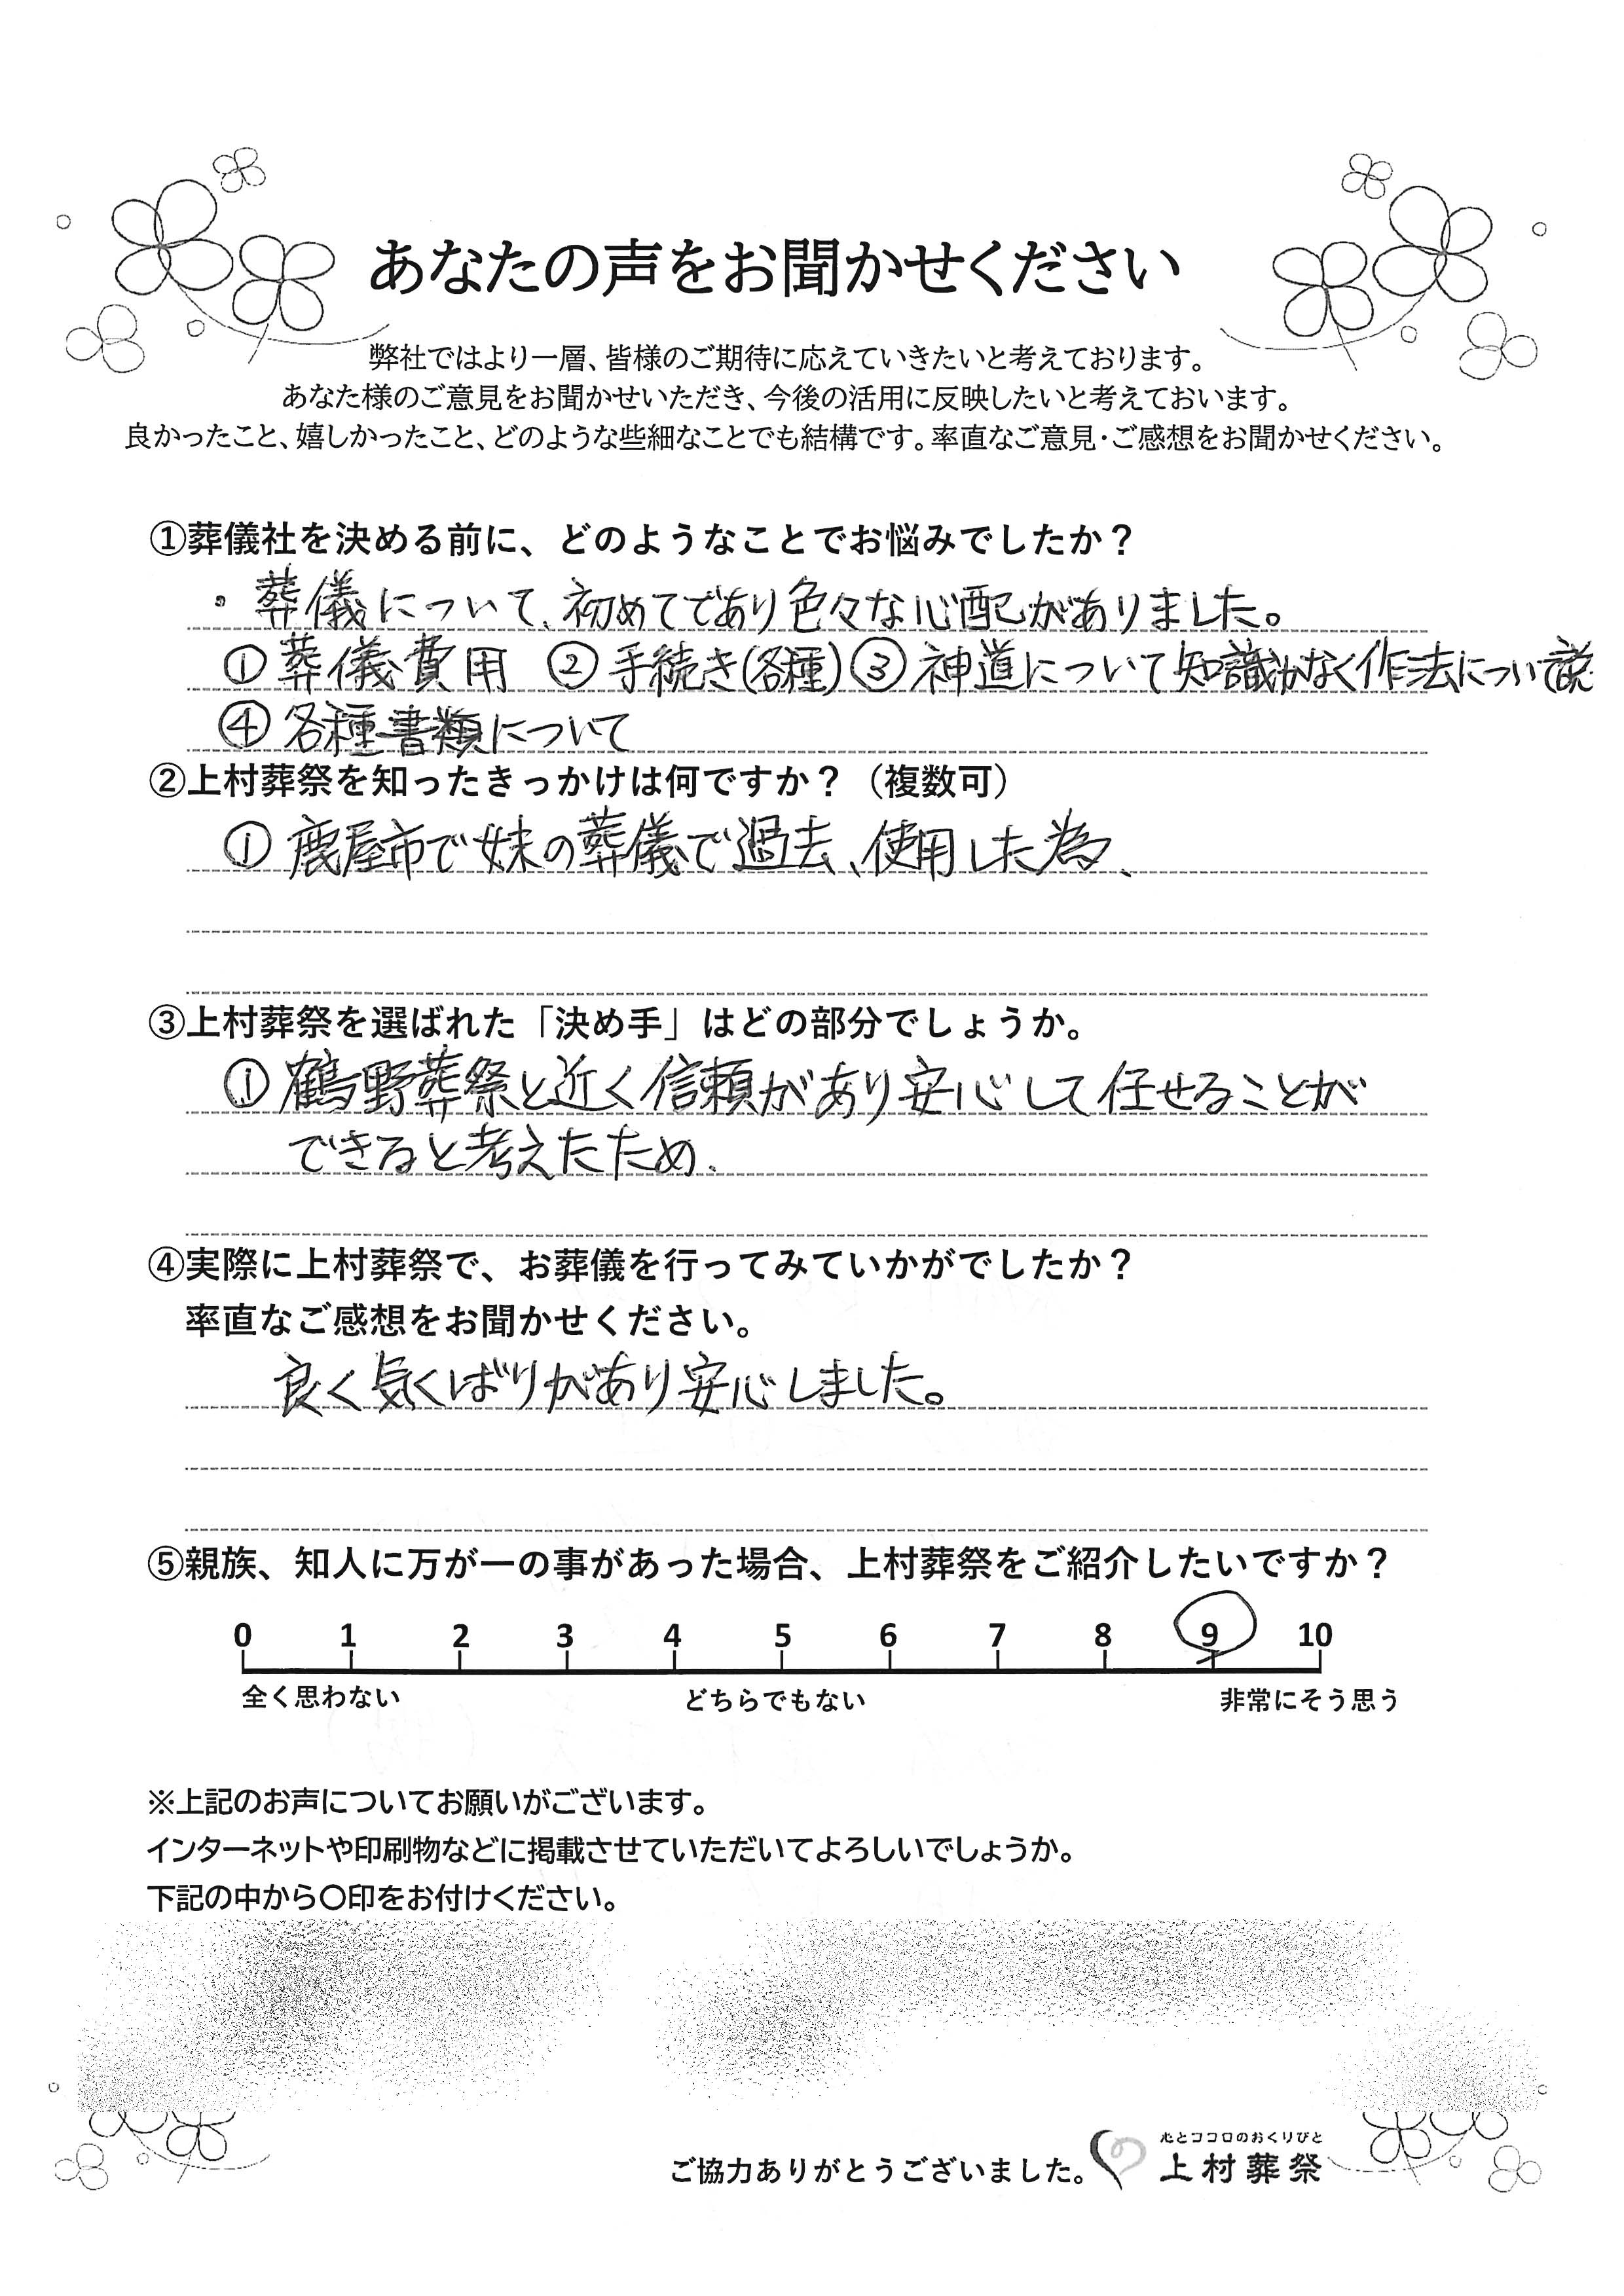 あなたの声をお聞かせください
弊社ではより一層、皆様のご期待に応えていきたいと考えております。
あなた様のご意見をお聞かせいただき、今後の活用に反映したいと考えておいます。
良かったこと、嬉しかったこと、どのような些細なことでも結構です。率直なご意見・ご感想をお聞かせください。
①葬儀社を決める前に、どのようなことでお悩みでしたか？
・葬儀について、初めてであり色々な心配がありました。
①葬儀費用 ②手続き(各種) ③神道について知識がなく作法について説
④各種書類について
②上村葬祭を知ったきっかけは何ですか？（複数可）
①鹿屋市で妹の葬儀で過去、使用した為、
③上村葬祭を選ばれた「決め手」はどの部分でしょうか。
①鶴野葬祭と近く信頼があり安心して任せることが
できると考えたため、
④実際に上村葬祭で、お葬儀を行ってみていかがでしたか？
率直なご感想をお聞かせください。
良く気くばりがあり安心しました。
⑤親族、知人に万が一の事があった場合、上村葬祭をご紹介したいですか？
0 1 2 3 4 5 6 7 8 9 10
全く思わない どちらでもない 非常にそう思う
※上記のお声についてお願いがございます。
インターネットや印刷物などに掲載させていただいてよろしいでしょうか。
下記の中から〇印をお付けください。
心とココロのおくりびと
ご協力ありがとうございました。 上村葬祭